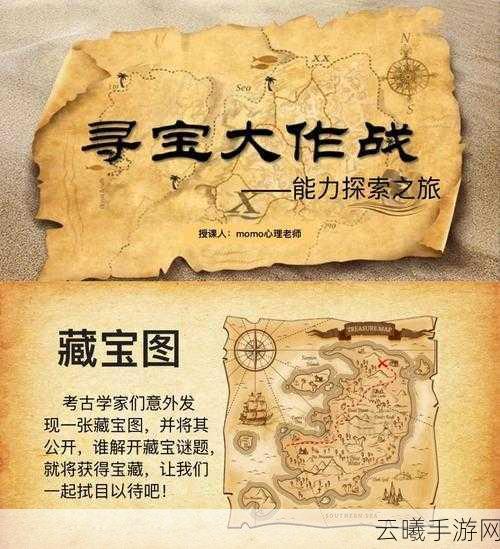 N
XX
Sea
寻宝大作战
——能力探索之旅
X
授课人：momo心理老师
藏宝图
考古学家们意外发
现一张藏宝图，并将其
公开，谁解开藏宝谜题，
就将获得宝藏，让我们
一起拭目以待吧！
TREASURE MAP
SOUTHERN SEA
云曦手游网